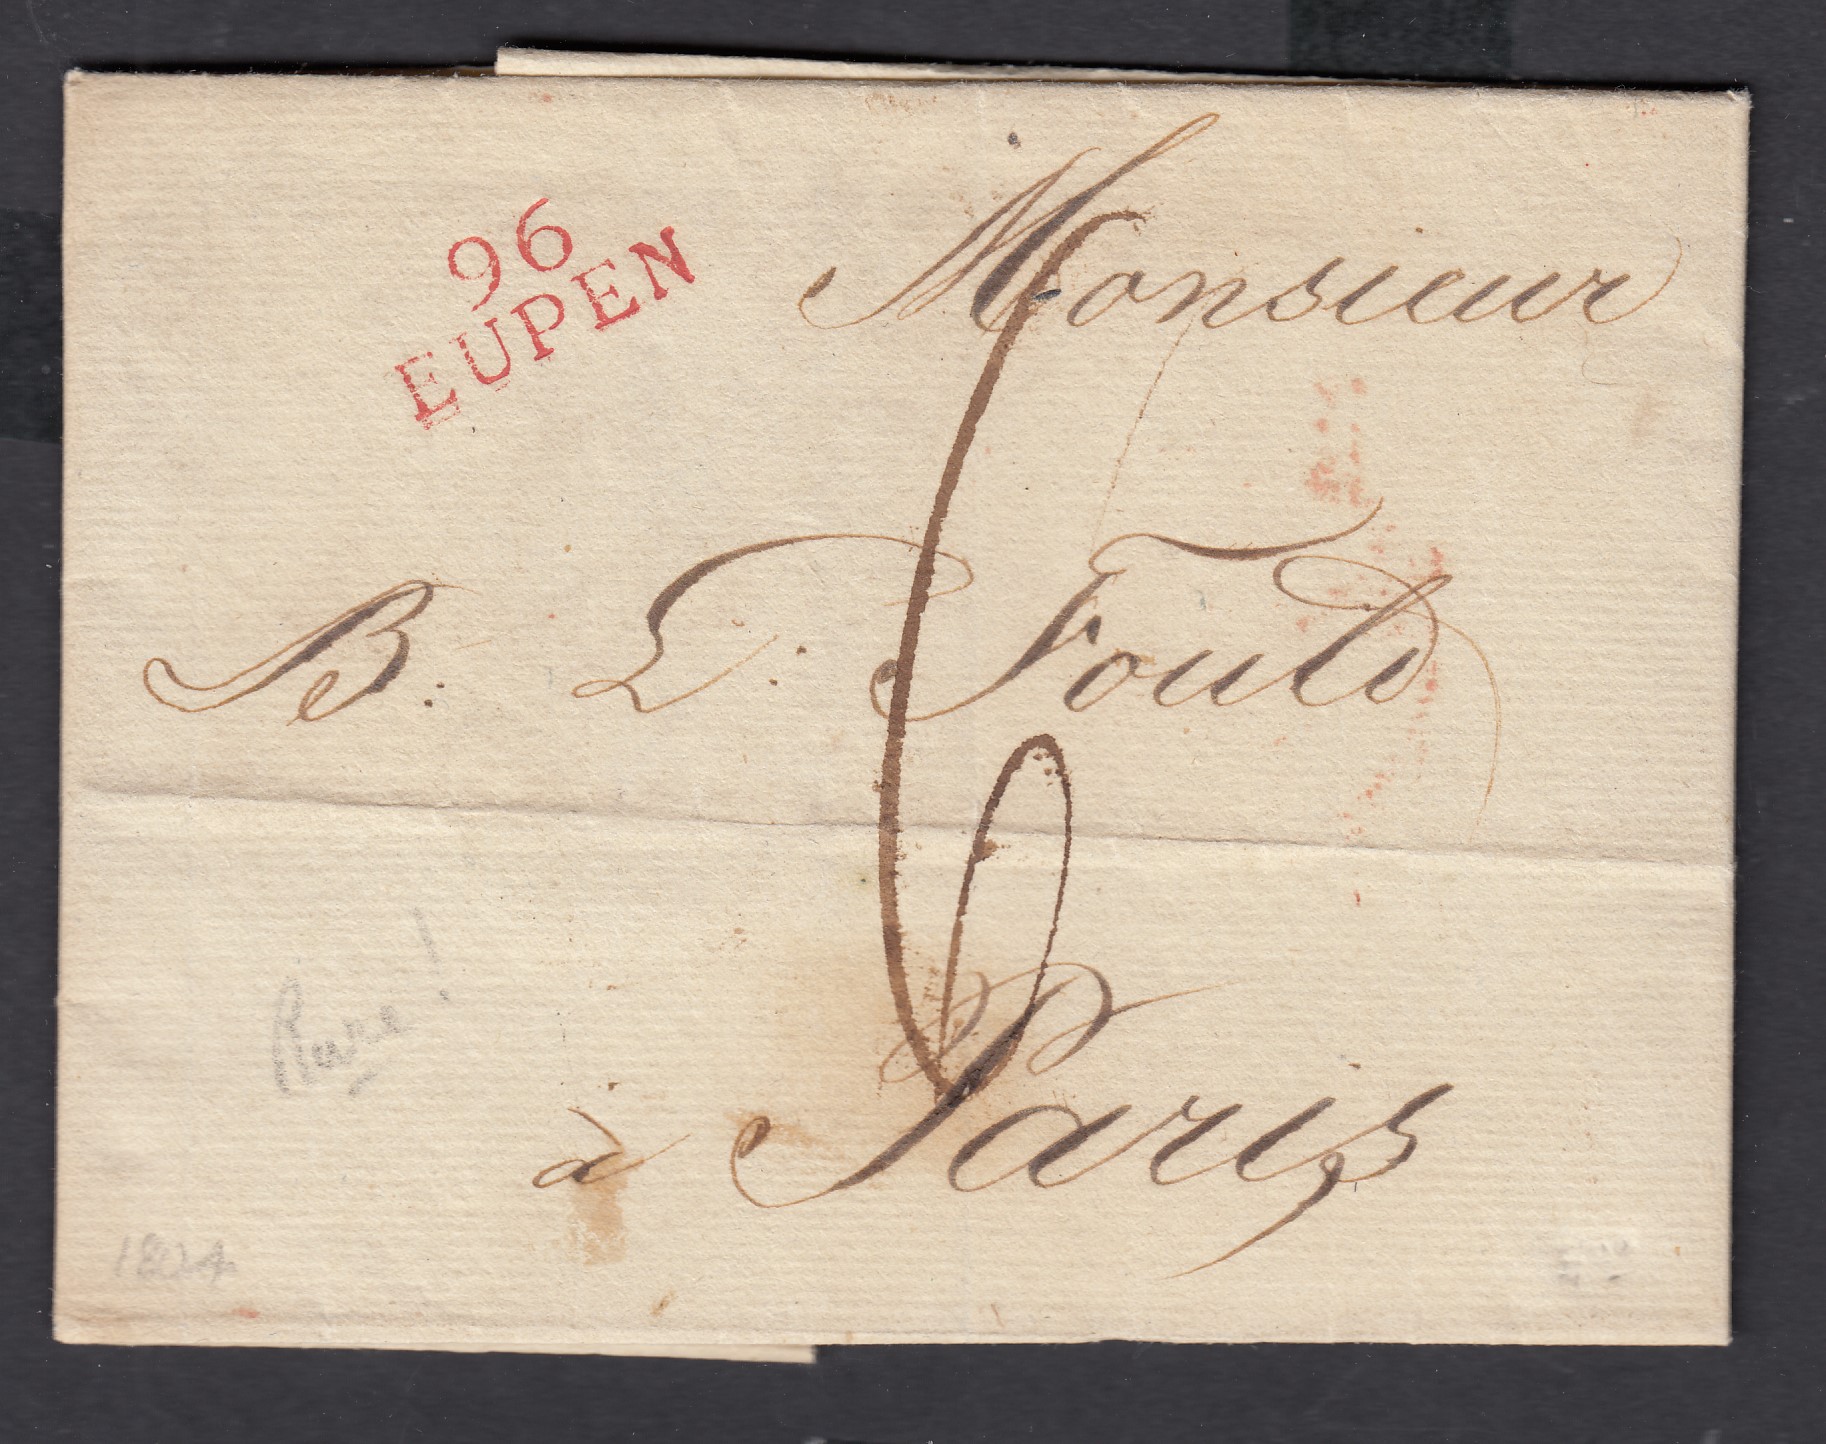 96
EUPEN
Monsieur
B. L. Fould
6
à Paris
Rare!
1804